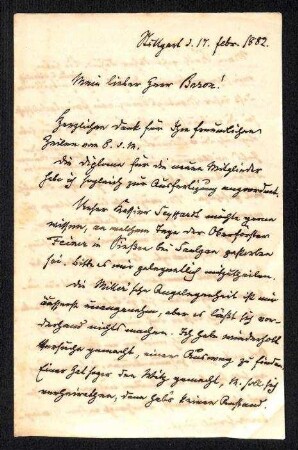 Stuttgart d. 17. febr. 1882.
Mein lieber Herr Baron!
Herzlichen Dank für Ihre freundlichen
Zeilen vom 8. d. M.
Die Diplome für die neuen Mitglieder
habe ich sogleich zur Ausfertigung angeordnet.
Unser Kassier Seyffardt möchte gerne
wissen, an welchem Tage der Oberförster
in bei gestorben
sei. Bitte es mir gelegentlich mitzutheilen.
Die Angelegenheit ist mir
äusserst unangenehm, aber es lässt sich vor-
derhand nichts machen. Ich habe wiederholt
Versuche gemacht, einen Ausweg zu finden.
Einer hat sogar den Witz gemacht, M. soll sich
verheirathen, dann hab's keinen Anstand.